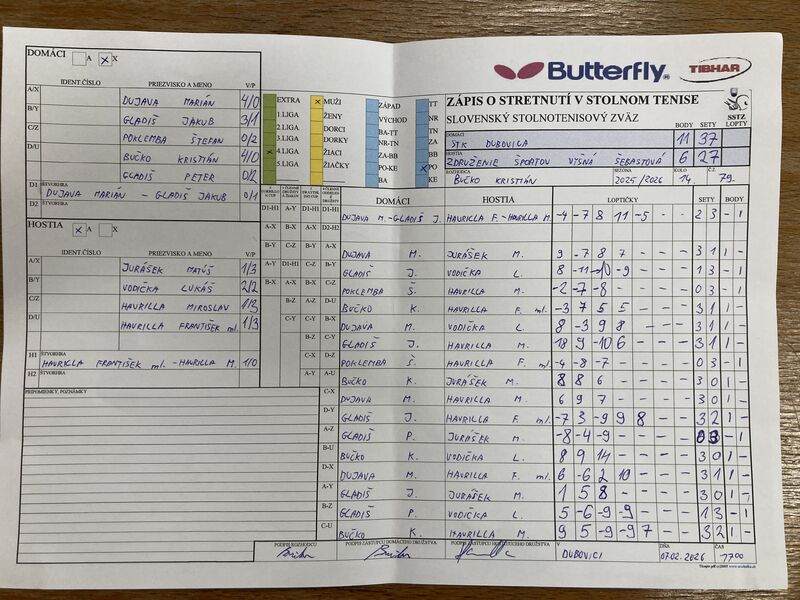 DOMÁCI A X X
IDENT.ČÍSLO PRIEZVISKO A MENO V/P
A/X DUJAVA MARIÁN 4/0
B/Y GLADIŠ JAKUB 3/1
C/Z POKLEMBA ŠTEFAN 0/2
D/U BUČKO KRISTIÁN 4/0
GLADIŠ PETER 0/2
D1 ŠTVORHRA DUJAVA MARIÁN - GLADIŠ JAKUB 0/1
D2 ŠTVORHRA
HOSTIA X A X
IDENT.ČÍSLO PRIEZVISKO A MENO V/P
A/X JURÁŠEK MATÚŠ 1/3
B/Y VODIČKA LUKÁŠ 2/2
C/Z HAVRILLA MIROSLAV 1/3
D/U HAVRILLA FRANTIŠEK ml. 1/3
H1 ŠTVORHRA HAVRILLA FRANTIŠEK ml. - HAVRILLA M. 1/0
H2 ŠTVORHRA
PRIPOMIENKY, POZNÁMKY
EXTRA
1.LIGA
2.LIGA
3.LIGA
X 4.LIGA
5.LIGA
X MUŽI
ŽENY
DORCI
DORKY
ŽIACI
ŽIAČKY
ZÁPAD
VÝCHOD
BA-TT
NR-TN
ZA-BB
PO-KE
BA
TT
NR
TN
ZA
BB
X PO
KE
Butterfly TIBHAR
ZÁPIS O STRETNUTÍ V STOLNOM TENISE
SLOVENSKÝ STOLNOTENISOVÝ ZVÄZ SSTZ
BODY SETY LOPTY
DOMÁCI STK DUBOVICA 11 37
HOSTIA ZDRUŽENIE ŠPORTOV VYŠNÁ ŠEBASTOVÁ 6 27
ROZHODCA BUČKO KRISTIÁN SEZÓNA 2025/2026 KOLO 14. Č.Z. 79.
DOMÁCI HOSTIA LOPTIČKY SETY BODY
D1-H1 A-Y D1-H1 D1-H1 DUJAVA M.-GLADIŠ J. HAVRILLA F.-HAVRILLA M. -4 -7 8 11 -5 - - 2 3 - 1
A-X B-X A-X D2-H2
B-Y C-Z B-Y A-X DUJAVA M. JURÁŠEK M. 9 -7 8 7 - - - 3 1 1 -
A-Y D1-H1 C-Z B-Y GLADIŠ J. VODIČKA L. 8 -11 -10 -9 - - - 1 3 - 1
B-X A-X B-X C-Z POKLEMBA Š. HAVRILLA M. -2 -7 -8 - - - - 0 3 - 1
C-X D-U BUČKO K. HAVRILLA F. ml. -3 7 5 5 - - - 3 1 1 -
B-Z A-Z A-Y DUJAVA M. VODIČKA L. 8 -3 9 8 - - - 3 1 1 -
C-Y C-Y B-Z GLADIŠ J. HAVRILLA M. 18 9 -10 6 - - - 3 1 1 -
C-U POKLEMBA Š. HAVRILLA F. ml. -4 -8 -7 - - - - 0 3 - 1
BUČKO K. JURÁŠEK M. 8 8 6 - - - - 3 0 1 -
C-X DUJAVA M. HAVRILLA M. 6 9 7 - - - - 3 0 1 -
D-Y GLADIŠ J. HAVRILLA F. ml. -7 3 -9 9 8 - - 3 2 1 -
A-Z GLADIŠ P. JURÁŠEK M. -8 -4 -9 - - - - 0 3 - 1
B-U BUČKO K. VODIČKA L. 8 9 14 - - - - 3 0 1 -
D-X DUJAVA M. HAVRILLA F. ml. 6 -6 2 10 - - - 3 1 1 -
A-Y GLADIŠ J. JURÁŠEK M. 1 5 8 - - - - 3 0 1 -
B-Z GLADIŠ P. VODIČKA L. 5 -6 -9 -9 - - - 1 3 - 1
C-U BUČKO K. HAVRILLA M. 9 5 -9 -9 7 - - 3 2 1 -
PODPIS ROZHODCU PODPIS ZÁSTUPCU DOMÁCEHO DRUŽSTVA PODPIS ZÁSTUPCU HOSŤUJÚCEHO DRUŽSTVA V DUBOVICI DŇA 07.02.2026 ČAS 17:00